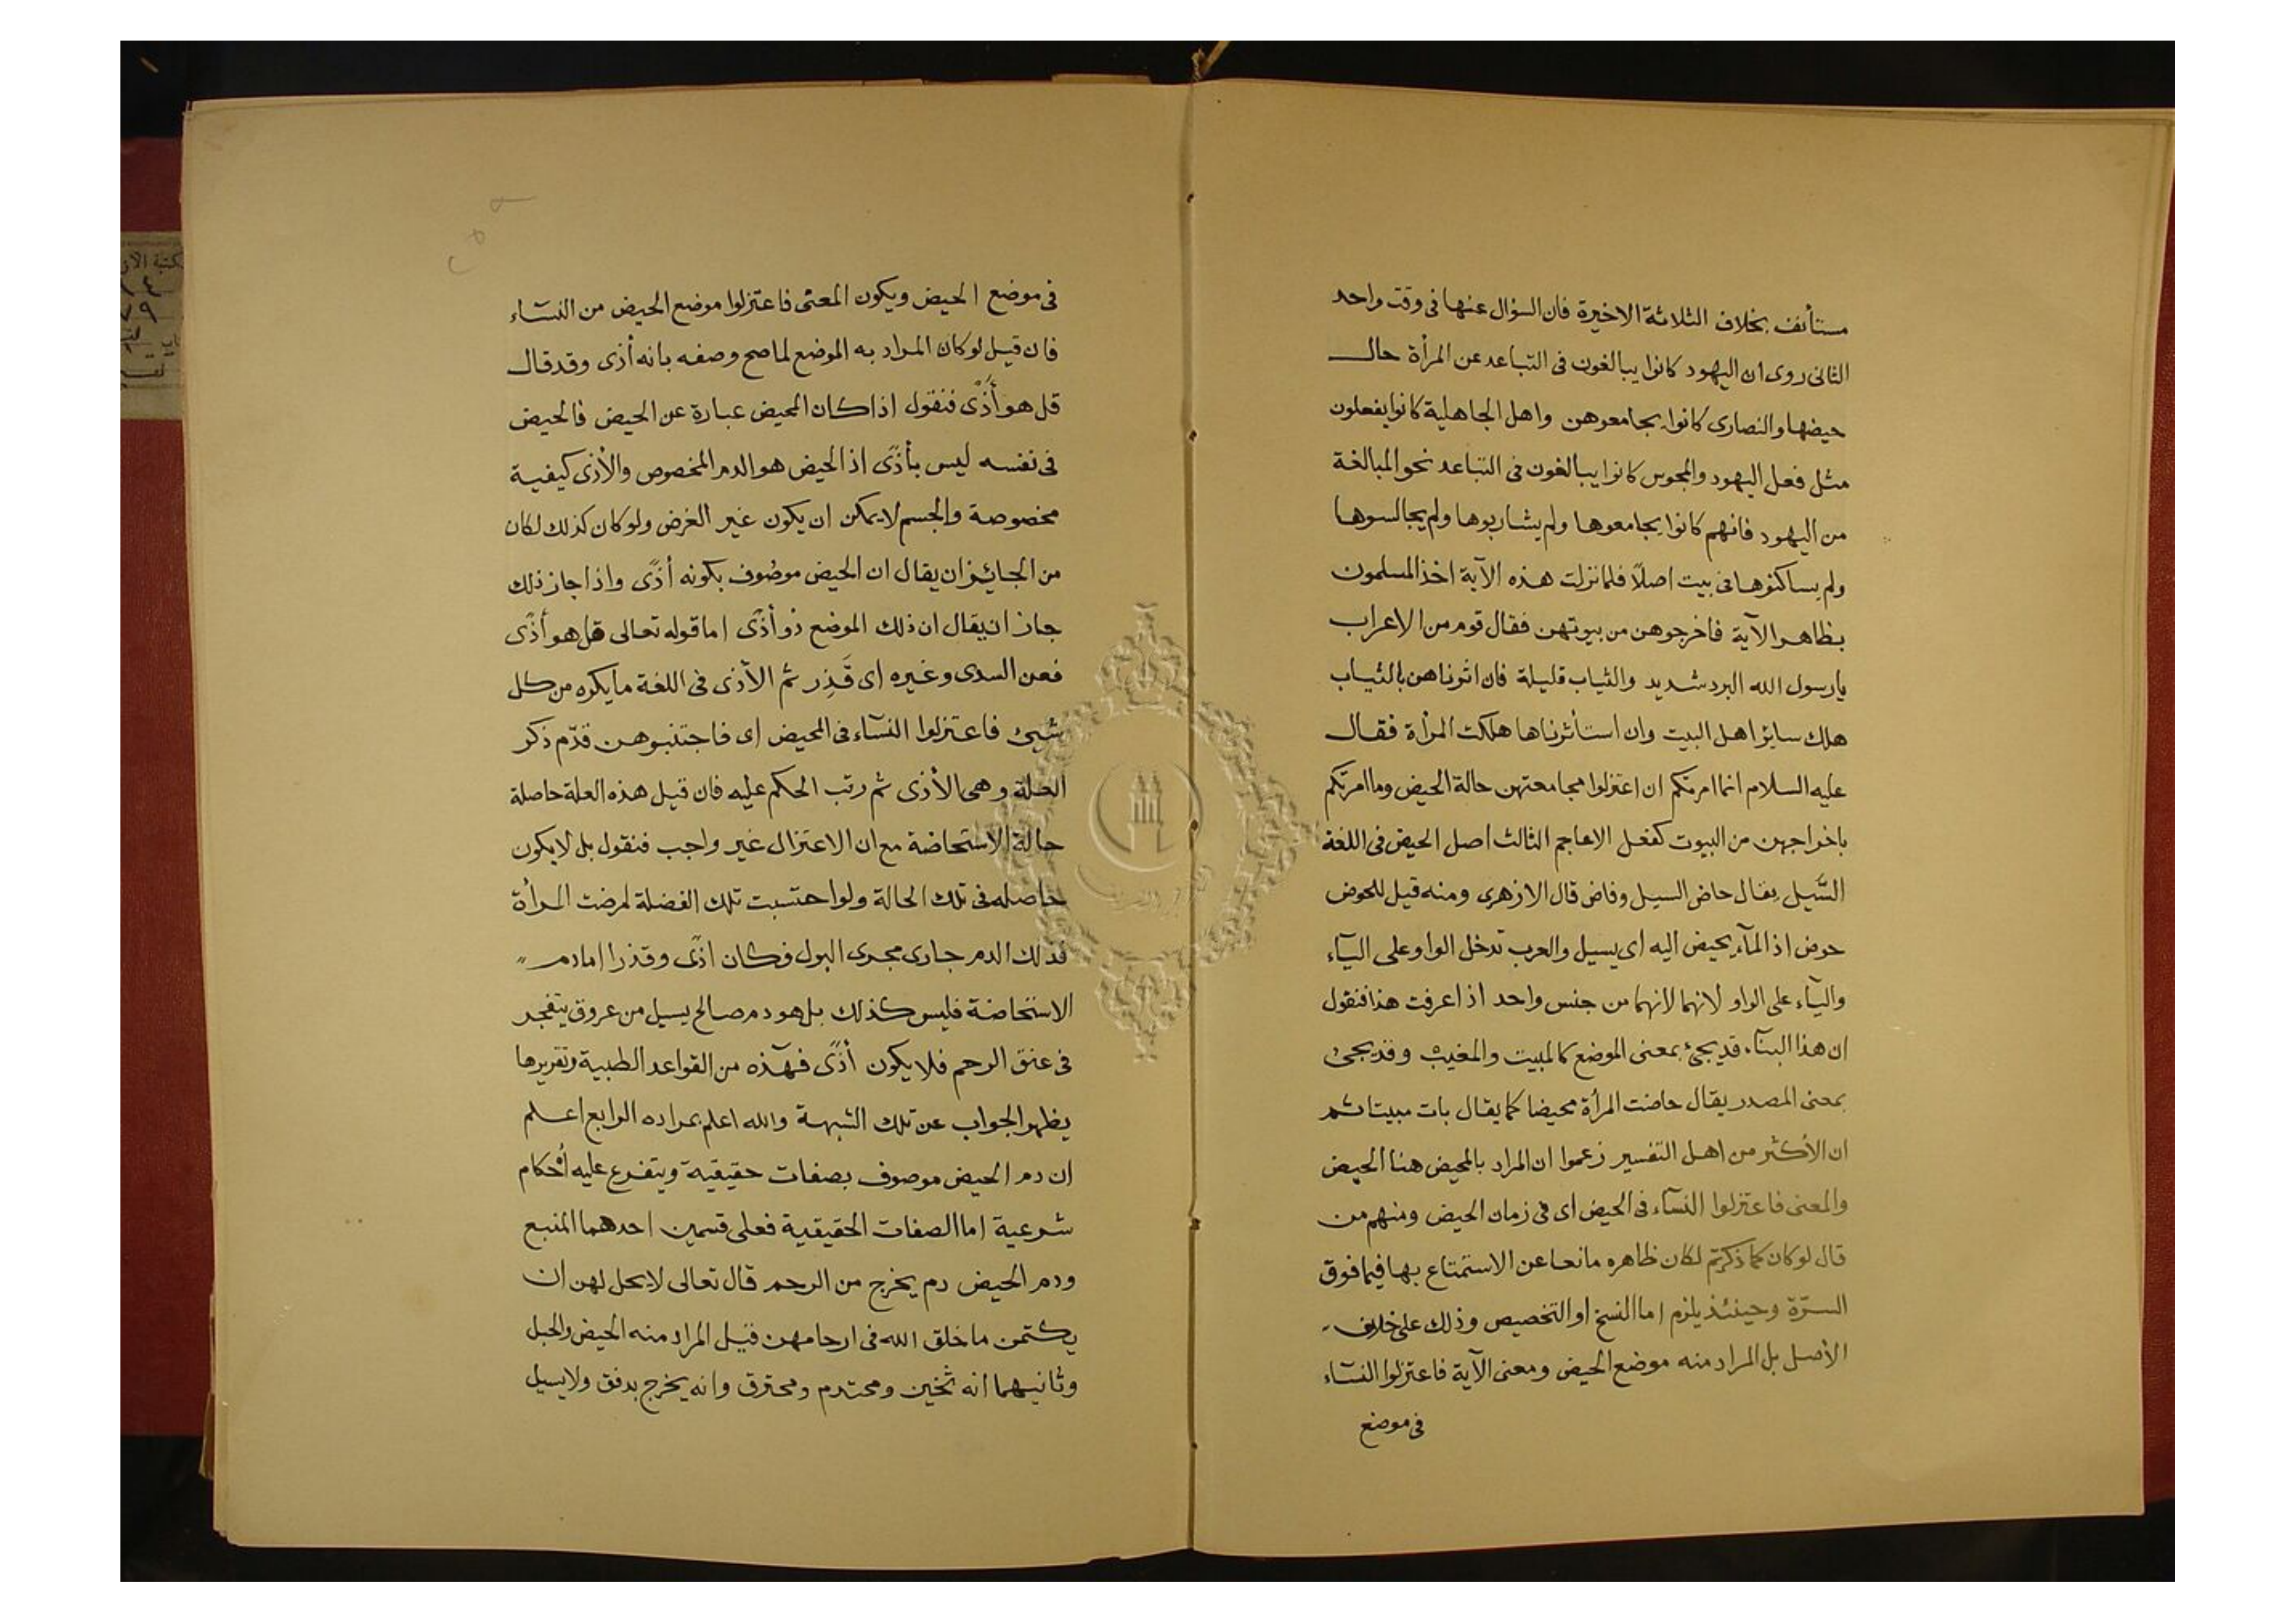 مستأنف بخلاف الثلاثة الاخيرة فان السؤال عنها فى وقت واحد
الثانى روى ان اليهود كانوا يبالغون فى التباعد عن المرأة حالـــ
حيضها والنصارى كانوا يجامعوهن واهل الجاهلية كانوا يفعلون
مثل فعل اليهود والمجوس كانوا يبالغون فى التباعد نحو المبالغة
من اليهود فانهم كانوا يجامعوها ولم يشاربوها ولم يجالسوها
ولم يساكنوها فى بيت اصلًا فلما نزلت هذه الآية اخذ المسلمون
بظاهر الآية فاخرجوهن من بيوتهن فقال قوم من الاعراب
يا رسول الله البرد شديد والثياب قليلة فان اثرناهن بالثياب
هلك سائر اهل البيت وان استأثرناها هلكت المرأة فقال
عليه السلام انما امرتكم ان اعتزلوا مجامعتهن حالة الحيض وما امرتكم
باخراجهن من البيوت كفعل الاعاجم الثالث اصل الحيض فى اللغة
السَّيل يقال حاض السيل وفاض قال الازهرى ومنه قيل للحوض
حوض اذ المآء يحيض اليه اى يسيل والعرب تدخل الواو على اليآء
واليآء على الواو لانهما لانهما من جنس واحد اذا عرفت هذا فنقول
ان هذا البنآء قد يجئ بمعنى الموضع كالمبيت والمغيب وقد يجئ
بمعنى المصدر يقال حاضت المرأة محيضا كما يقال بات مبيتا ثم
ان الأكثر من اهل التفسير زعموا ان المراد بالمحيض هنا الحيض
والمعنى فاعتزلوا النسآء فى الحيض اى فى زمان الحيض ومنهم من
قال لو كان كما ذكرتم لكان ظاهره مانعا عن الاستمتاع بها فيما فوق
السرّة وحينئذ يلزم اما النسخ او التخصيص وذلك على خلاف
الأصل بل المراد منه موضع الحيض ومعنى الآية فاعتزلوا النسآء
فى موضع
فى موضع الحيض ويكون المعنى فاعتزلوا موضع الحيض من النسآء
فان قيل لو كان المراد به الموضع لما صح وصفه بانه أذى وقد قالـ
قل هو أَذًى فنقول اذا كان المحيض عبارة عن الحيض فالحيض
فى نفسه ليس بأذًى اذ الحيض هو الدم المخصوص والأذى كيفية
مخصوصة والجسم لا يمكن ان يكون غير الغرض ولو كان كذلك لكان
من الجائز ان يقال ان الحيض موصوف بكونه أذًى واذا جاز ذلك
جاز ان يقال ان ذلك الموضع ذو أذًى اما قوله تعالى قل هو أذًى
فعن السدى وغيره اى قَذِر ثم الأذى فى اللغة ما يكره من كل
شيئ فاعتزلوا النسآء فى المحيض اى فاجتنبوهن قدّم ذكر
العلة وهى الأذى ثم رتب الحكم عليه فان قيل هذه العلة حاصلة
حالة الاستحاضة مع ان الاعتزال غير واجب فنقول بل لا يكون
حاصله فى تلك الحالة ولو احتسبت تلك الفضلة لمرضت المرأة
فذلك الدم جارى مجرى البول فكان اذًى وقذرا اما دم
الاستحاضة فليس كذلك بل هو دم صالح يسيل من عروق يتفجر
فى عنق الرحم فلا يكون أذًى فهذه من القواعد الطبية وتقريرها
يظهر الجواب عن تلك الشبهة والله اعلم بمراده الرابع اعلم
ان دم الحيض موصوف بصفات حقيقية ويتفرع عليه أحكام
شرعية اما الصفات الحقيقية فعلى قسمين احدهما المنبع
ودم الحيض دم يخرج من الرحم قال تعالى لا يحل لهن ان
يكتمن ما خلق الله فى ارحامهن قيل المراد منه الحيض والحبل
وثانيهما انه ثخين ومحتدم ومحترق وانه يخرج بدفق ولا يسيل